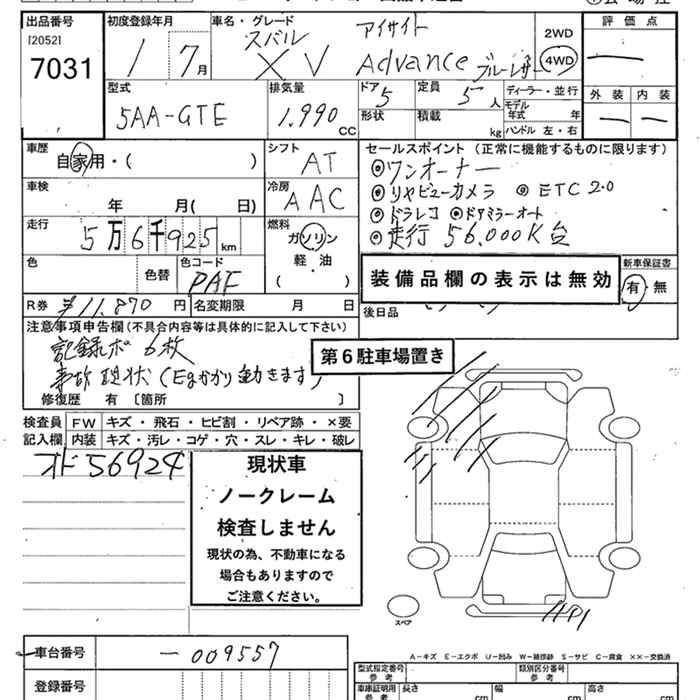 出品番号 初度登録年月 車名・グレード アイサイト 2WD 評価点
[2052] スバル
7031 1/7月 XV Advance ブルーレザー 4WD —
型式 排気量 ドア 定員 ディーラー・並行 外装 内装
5AA-GTE 1.990 CC 5 5人 モデル年式 年 — —
形状 積載 kg ハンドル 左・右
車歴 シフト セールスポイント (正常に機能するものに限ります)
自家用・( ) AT ◎ワンオーナー
車検 冷房 ◎リヤビューカメラ ◎ETC 2.0
年 月( 日) AAC ◎ドラレコ ◎ドアミラーオート
走行 燃料 ◎走行 56,000K台
5万6千925km ガソリン
色 色替 色コード 軽・油 装備品欄の表示は無効 新車保証書
PAF ( ) 有・無
R券 ¥11,870円 名変期限 月 日 後日品
注意事項申告欄(不具合内容等は具体的に記入して下さい)
記録ボ 6枚
第6駐車場置き
事故現状(Egかかり動きます)
修復歴 有 〔箇所 〕
検査員 FW キズ・飛石・ヒビ割・リペア跡・×要
記入欄 内装 キズ・汚レ・コゲ・穴・スレ・キレ・破レ
オド56924
現状車
ノークレーム
検査しません
現状の為、不動車になる
場合もありますので
ご注意ください。
スペア
A-キズ E-エクボ U-凹ミ W-補修跡 S-サビ C-腐食 ××-交換済
車台番号 -009557
型式指定番号 参考 類別区分番号 参考
登録番号
車庫証明用 参考 長さ cm 幅 cm 高さ cm